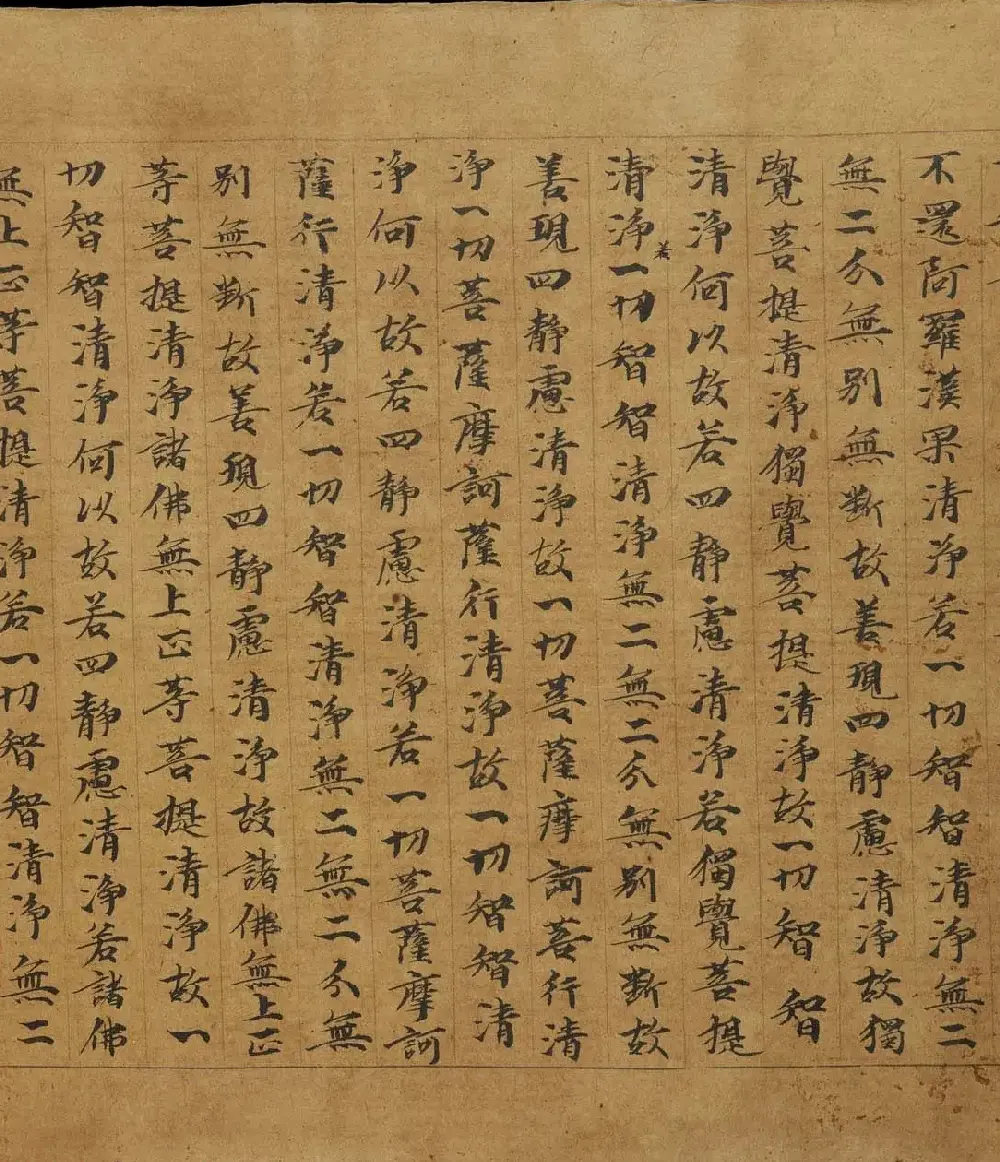 不還阿羅漢果清淨若一切智智清淨無二
無二分無別無斷故善現四靜慮清淨故獨
覺菩提清淨獨覺菩提清淨故一切智智
清淨何以故若四靜慮清淨若獨覺菩提
清淨若一切智智清淨無二無二分無別無斷故
善現四靜慮清淨故一切菩薩摩訶菩行清
淨一切菩薩摩訶薩行清淨故一切智智清
淨何以故若四靜慮清淨若一切菩薩摩訶
薩行清淨若一切智智清淨無二無二分無
別無斷故善現四靜慮清淨故諸佛無上正
等菩提清淨諸佛無上正等菩提清淨故一
切智智清淨何以故若四靜慮清淨若諸佛
無上正等菩提清淨若一切智智清淨無二